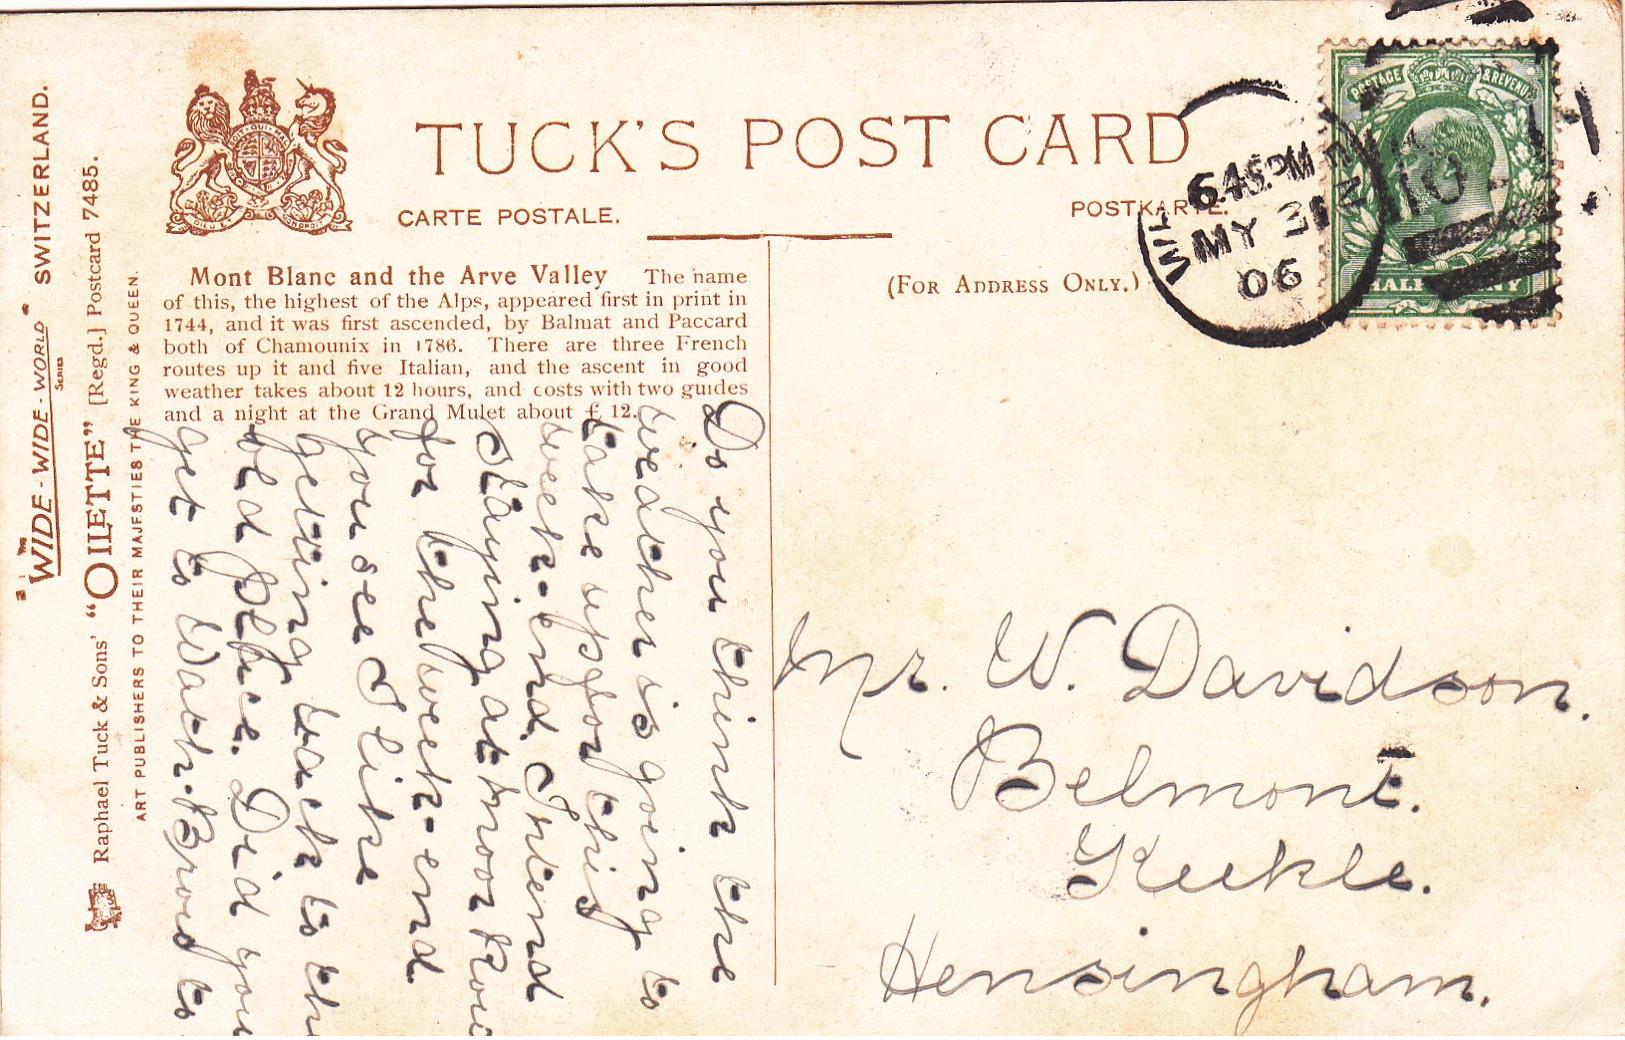 TUCK'S POST CARD
CARTE POSTALE.
POSTKARTE.
(FOR ADDRESS ONLY.)
6.45PM
MY 31
06
POSTAGE & REVENUE
HALFPENNY
"THE WIDE-WIDE-WORLD" SERIES SWITZERLAND.
Raphael Tuck & Sons' "OILETTE" [Regd.] Postcard 7485.
ART PUBLISHERS TO THEIR MAJESTIES THE KING & QUEEN.
Mont Blanc and the Arve Valley The name
of this, the highest of the Alps, appeared first in print in
1744, and it was first ascended, by Balmat and Paccard
both of Chamounix in 1786. There are three French
routes up it and five Italian, and the ascent in good
weather takes about 12 hours, and costs with two guides
and a night at the Grand Mulet about £ 12.
Do you think the
weather is going to
take up for this
week-end. I intend
staying at moor Row
for the week-end.
you see I like
getting back to the
old place. Did you
get to Wath Brow to
Mr. W. Davidson.
Belmont.
Keekle.
Hensingham.